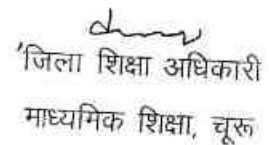 जिला शिक्षा अधिकारी
माध्यमिक शिक्षा, चूरू